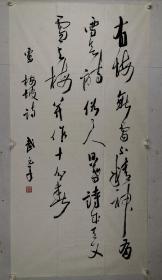 有梅無雪不精神有
雪無詩俗了人日暮詩成天又
雪与梅并作十分春
梅坡詩